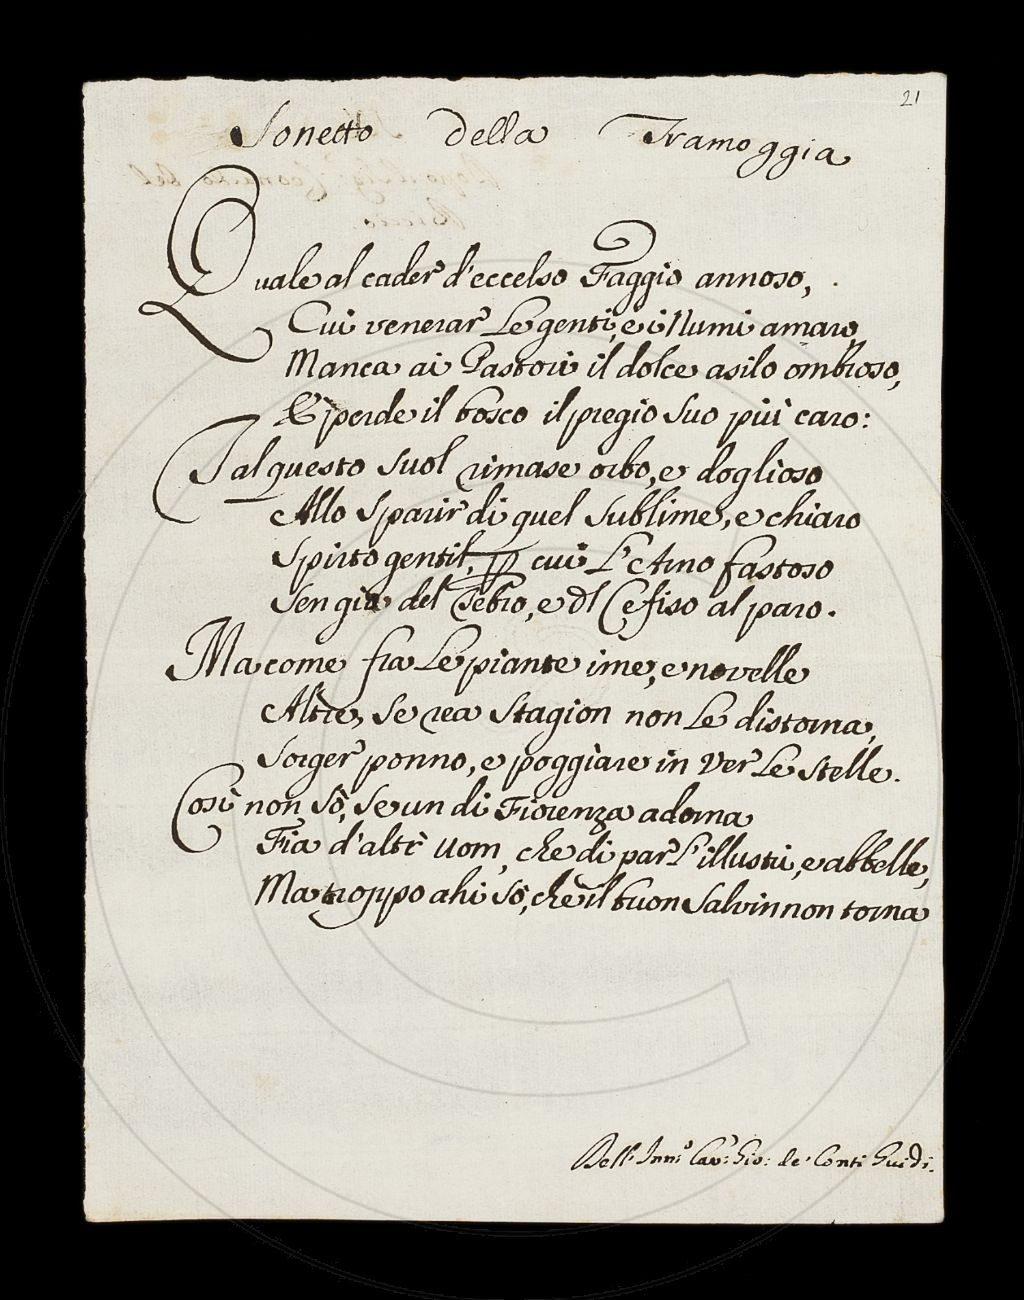 21
Sonetto della Tramoggia
Quale al cader d'eccelso Faggio annoso,
Cui venerar Le genti, e i Numi amaro,
Manca ai Pastori il dolce asilo ombroso,
E perde il bosco il pregio suo più caro:
Tal questo suol rimase orbo, e doglioso
Allo sparir di quel sublime, e chiaro
Spirto gentil, p cui L'Arno fastoso
Sen gia del Tebro, e dl Cefiso al paro.
Ma come fra Le piante ime, e novelle
Altre, se rea stagion non Le distorna,
Sorger ponno, e poggiare in ver Le stelle.
Così non sò, se un di Fiorenza adorna
Fia d'altr uom, che di par L'illustri, e abbelle,
Ma troppo ahi sò, che il buon Salvin non torna
Dell' Inn.º Cav.º Gio: de' Conti Guidi.